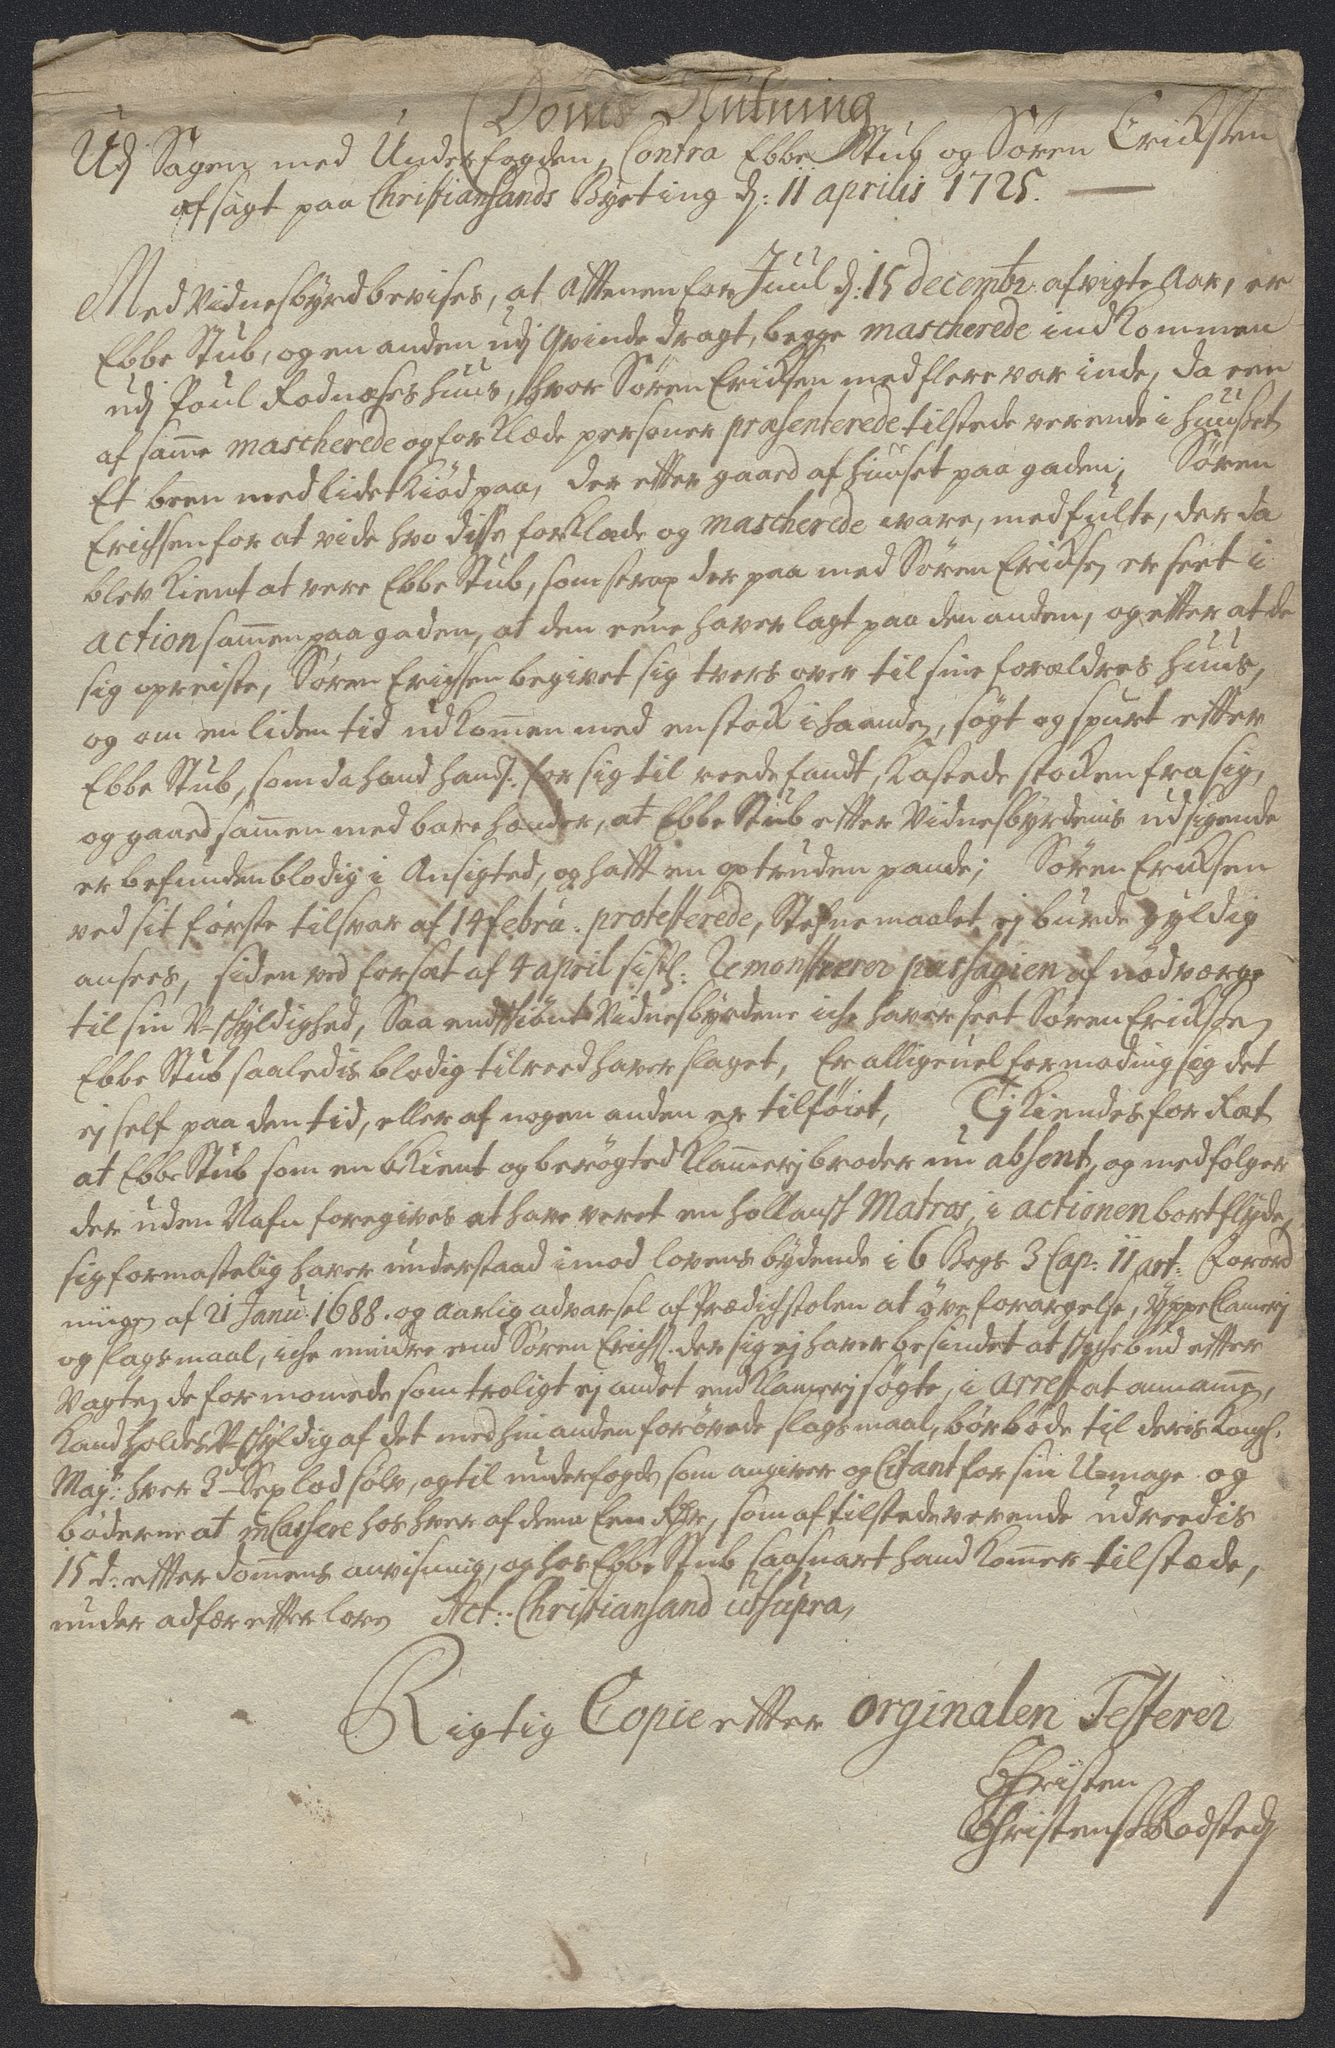 Doms Slutning
Udj Sagen med Underfogden, Contra Ebbe Stub og Søren Erichsen
afsagt paa Christiansands Byeting d: 11 aprilis 1725.
Med Vidnesbyrd bevises, at Afftenen for Juul d: 15 decembr. afvigte Aar, er
Ebbe Stub, og en anden udj Qvinde dragt, begge mascherede ind kommen
udj Poul Rodnæses huus, hvor Søren Erichsen med flere var inde, da een
af samme mascherede og forklæde personer præsenterede tilstede verende i huuset
Et been med lidet kiød paa, der effter gaaed af huuset paa gaden; Søren
Erichsen for at vide hvo disse forklæde og mascherede ware, medfulte, der da
blev kient at vere Ebbe Stub, som strax der paa med Søren Erichsen er seet i
action sammen paa gaden, at den eene haver lagt paa den anden, og effter at de
sig opreiste, Søren Erichsen begivet sig tvers over til sine forældres huus,
og om en liden tid udkommen med en stock i haanden, søgt og spurt effter
Ebbe Stub, som da hand hands: for sig til reede fandt, kastede stocken fra sig,
og gaaed sammen med bare hænder, at Ebbe Stub effter Vidnesbyrdenis udsigende
er befunden blodig i Ansigted, og hafft en optruden pande; Søren Erichsen
ved sit første tilsvar af 14 febru: protesterede, Stefnemaalet ej burde gyldig
ansees, siden ved forsæt af 4 april sistl: Remonstrerer passagien af nødværge
til sin U-skyldighed, Saa endskiønt Vidnesbyrdene iche haver seet Søren Erichsen
Ebbe Stub saaledis blodig tilreed haver slaget, Er alligevel formoding sig det
ej self paa den tid, eller af nogen anden er tilføiet, Tj kiendes for Ræt
at Ebbe Stub som en bekient og berøgted klammerj broder nu absent, og medfølger
der uden Nafn foregives at have veret en hollansk Matros, i actionen bortflyde,
sig formastelig haver understaad imod lovens bydende i 6 Bogs 3 Cap: 11 art: Forord
ningen af 21 Janu: 1688. og aarlig advarsel af Prædichstolen at øve forargelse, yppe Clamerj
og slagsmaal, iche mindre end Søren Erichs: der sig ej haver besindet at skiche bud effter
Vagten, de formomede som troligt ej andet end klamerj søgte, i arrest at annamme,
kand holdes U-skyldig af det med hin anden forøvede slagsmaal, bør bøde til deris Kongl:
Maj:t hver 3de Sex lod sølv, og til underfogden som angiver og Citant for sin Umage og
bøderne at inCassere hos hver af dem Een Rdr, som af tilstedeverende udreedis
15 d: effter dommens anvisning, og hos Ebbe Stub saasnart hand kommer tilstæde,
under adfær effter loven Act: Christiansand ut supra,
Rigtig Copie effter orginalen Testerer
Christen
Christensen Rodsted